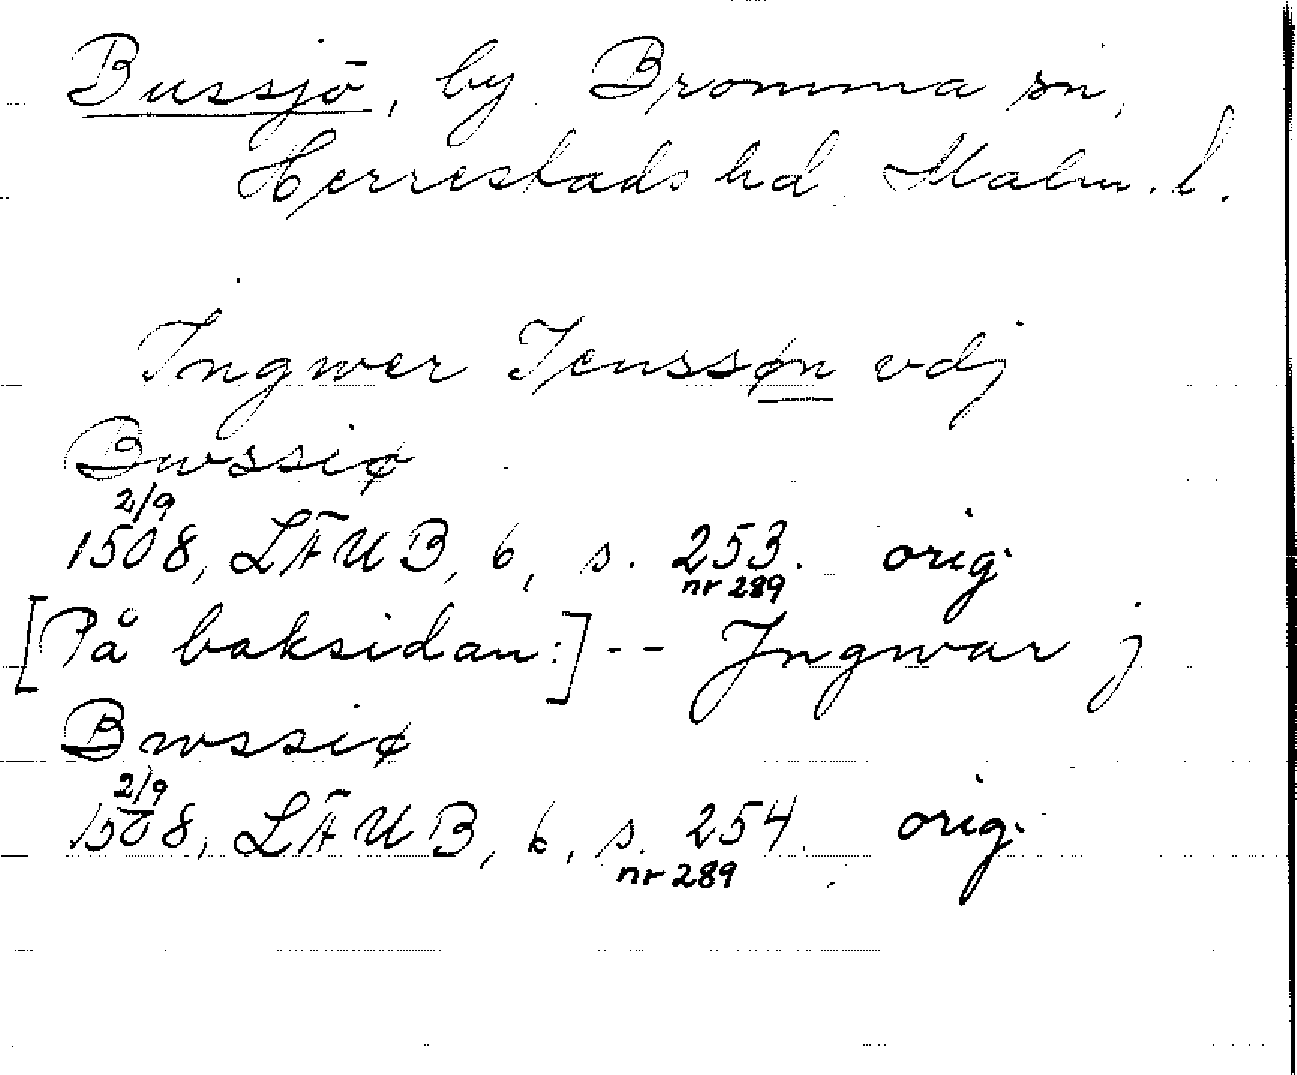 Bussjö, by Bromma sn,
Herrestads hd Malm. l.
Ingwer Jenssøn vdj
Bwssiø
2/9
1508, LÄUB, 6, s. 253. orig.
nr 289
[På baksidan:] -- Jngwar j
Bwssiø
2/9
1508, LÄUB, 6, s. 254 orig.
nr 289